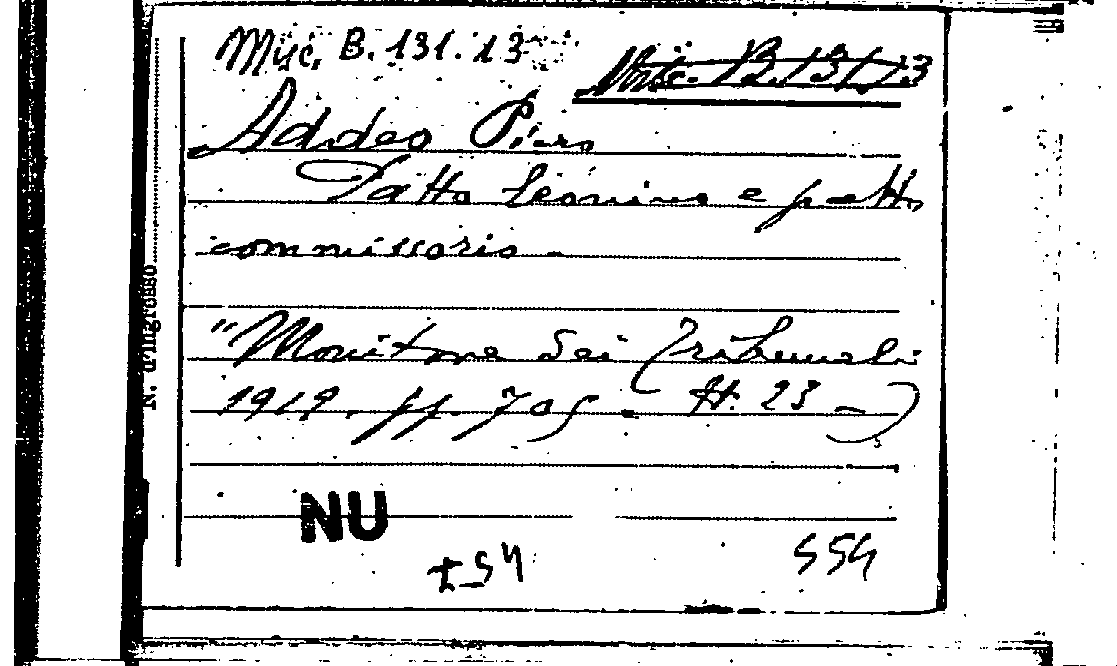 Misc. B. 131.13
Misc. B. 131.13
Addeo Piero
Patto leonino e patto
commissorio -
"Monitore dei Tribunali
1919. pp. 705 - H. 23 -
N. d'ingresso
NU
I-54
554